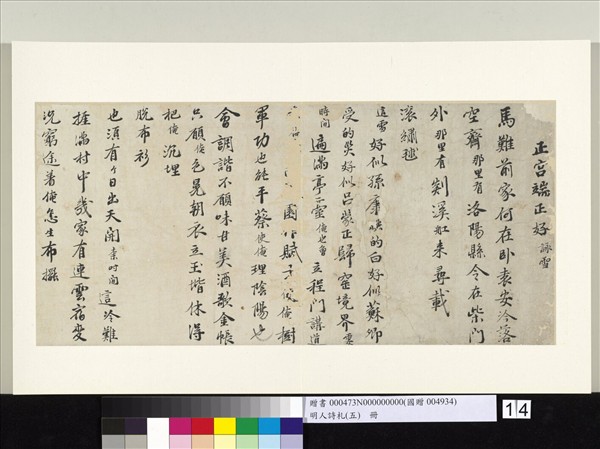 正宮端正好 詠雪
馬難前家何在卧袁安冷落
空齋那里有洛陽縣令在柴門
外那里有剡溪舡來尋載
滚繡毬
這雪好似孫康映的白好似蘇卿
受的災好似呂蒙正歸窰境界霎
時間遍滿亭臺俺也曾立程門講道
園賦俺樹
軍功也能平蔡使俺理陰陽也
會調諧不願味甘美酒歌金帳
只願俺色晃朝衣立玉堦休得
把俺沉埋
脫布衫
也須有个日出天開霎時間這冷難
捱滿村中幾家有連雲宿
況窮途着俺怎生布擺
贈書 000473N000000000(國贈 004934)
明人詩札(五) 冊
14